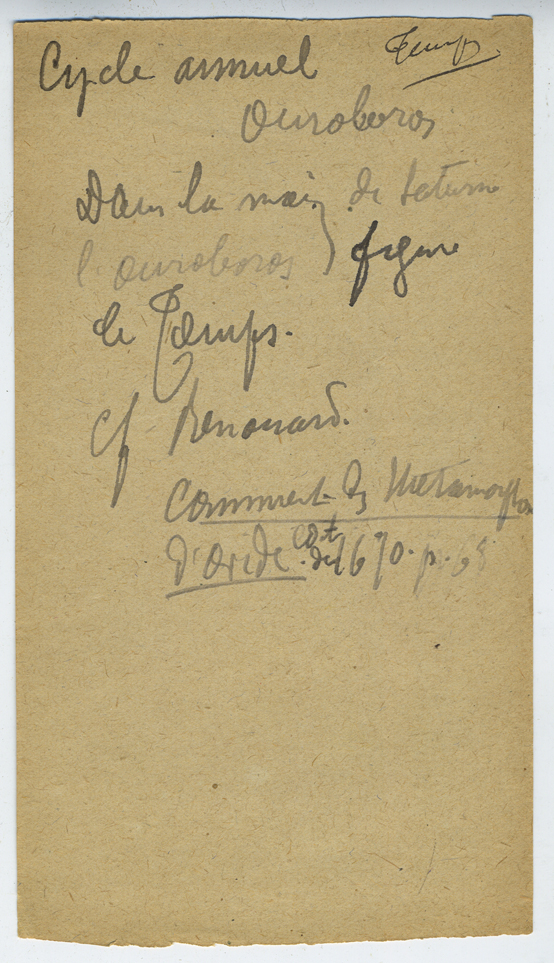 Temps.
Cycle annuel
Ouroboros
Dans la main de Saturne
l'ouroboros figure
le Temps.
Cf Renouard.
Comment. Métamorphos
d'Ovide. édit de 1670. p. 68